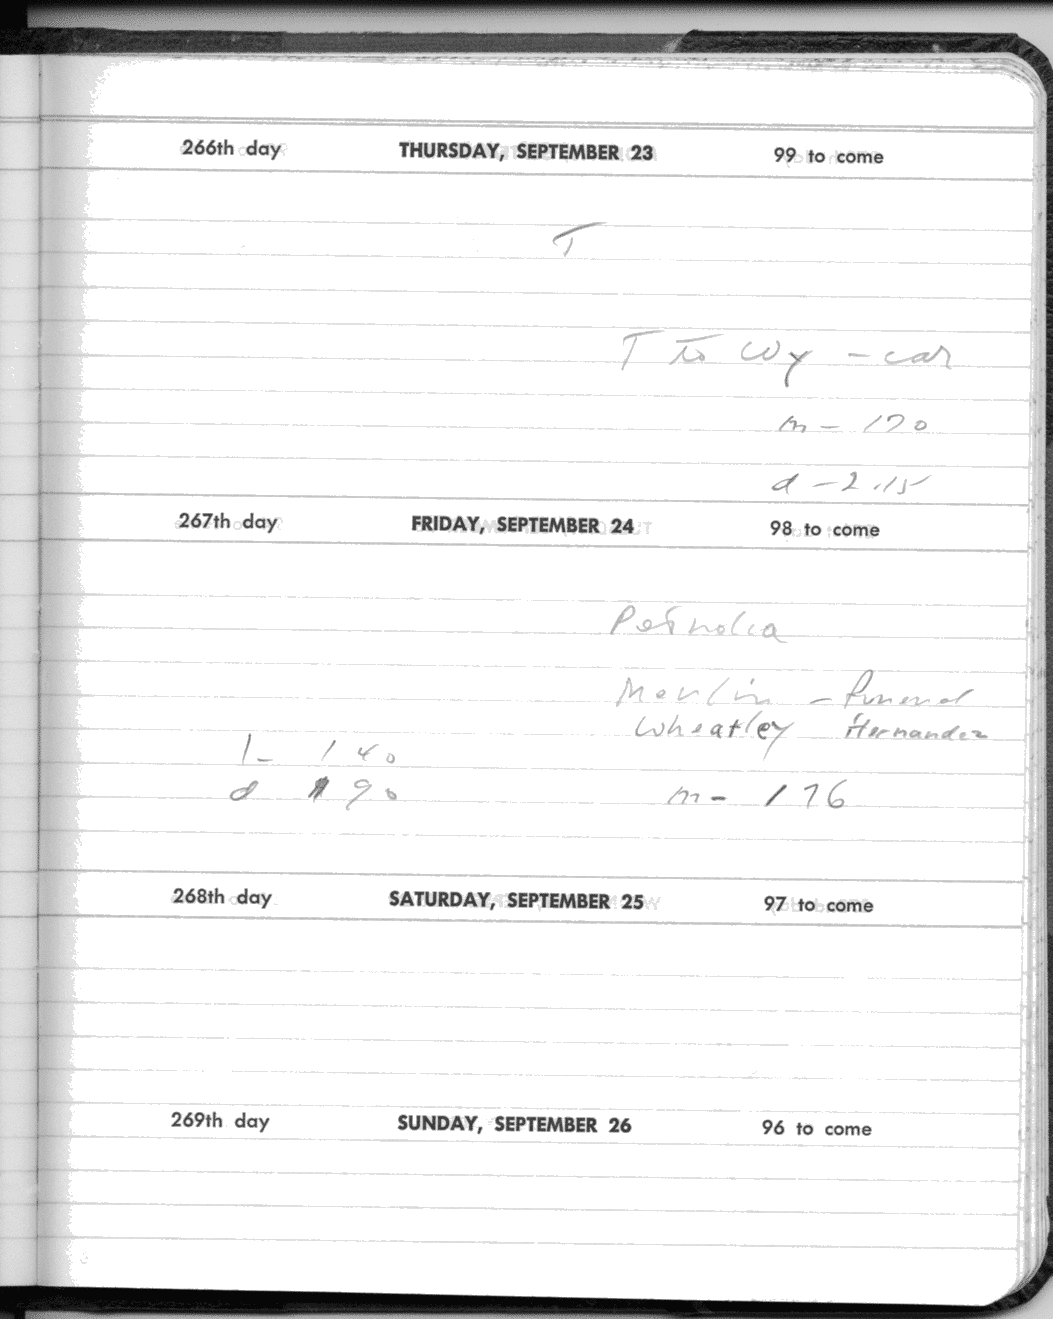 266th day THURSDAY, SEPTEMBER 23 99 to come
T
T to Wy - car
m - 170
d - 2.15
267th day FRIDAY, SEPTEMBER 24 98 to come
Merlin - Funeral
Wheatley Hernandez
1- 140
d 190 m- 176
268th day SATURDAY, SEPTEMBER 25 97 to come
269th day SUNDAY, SEPTEMBER 26 96 to come